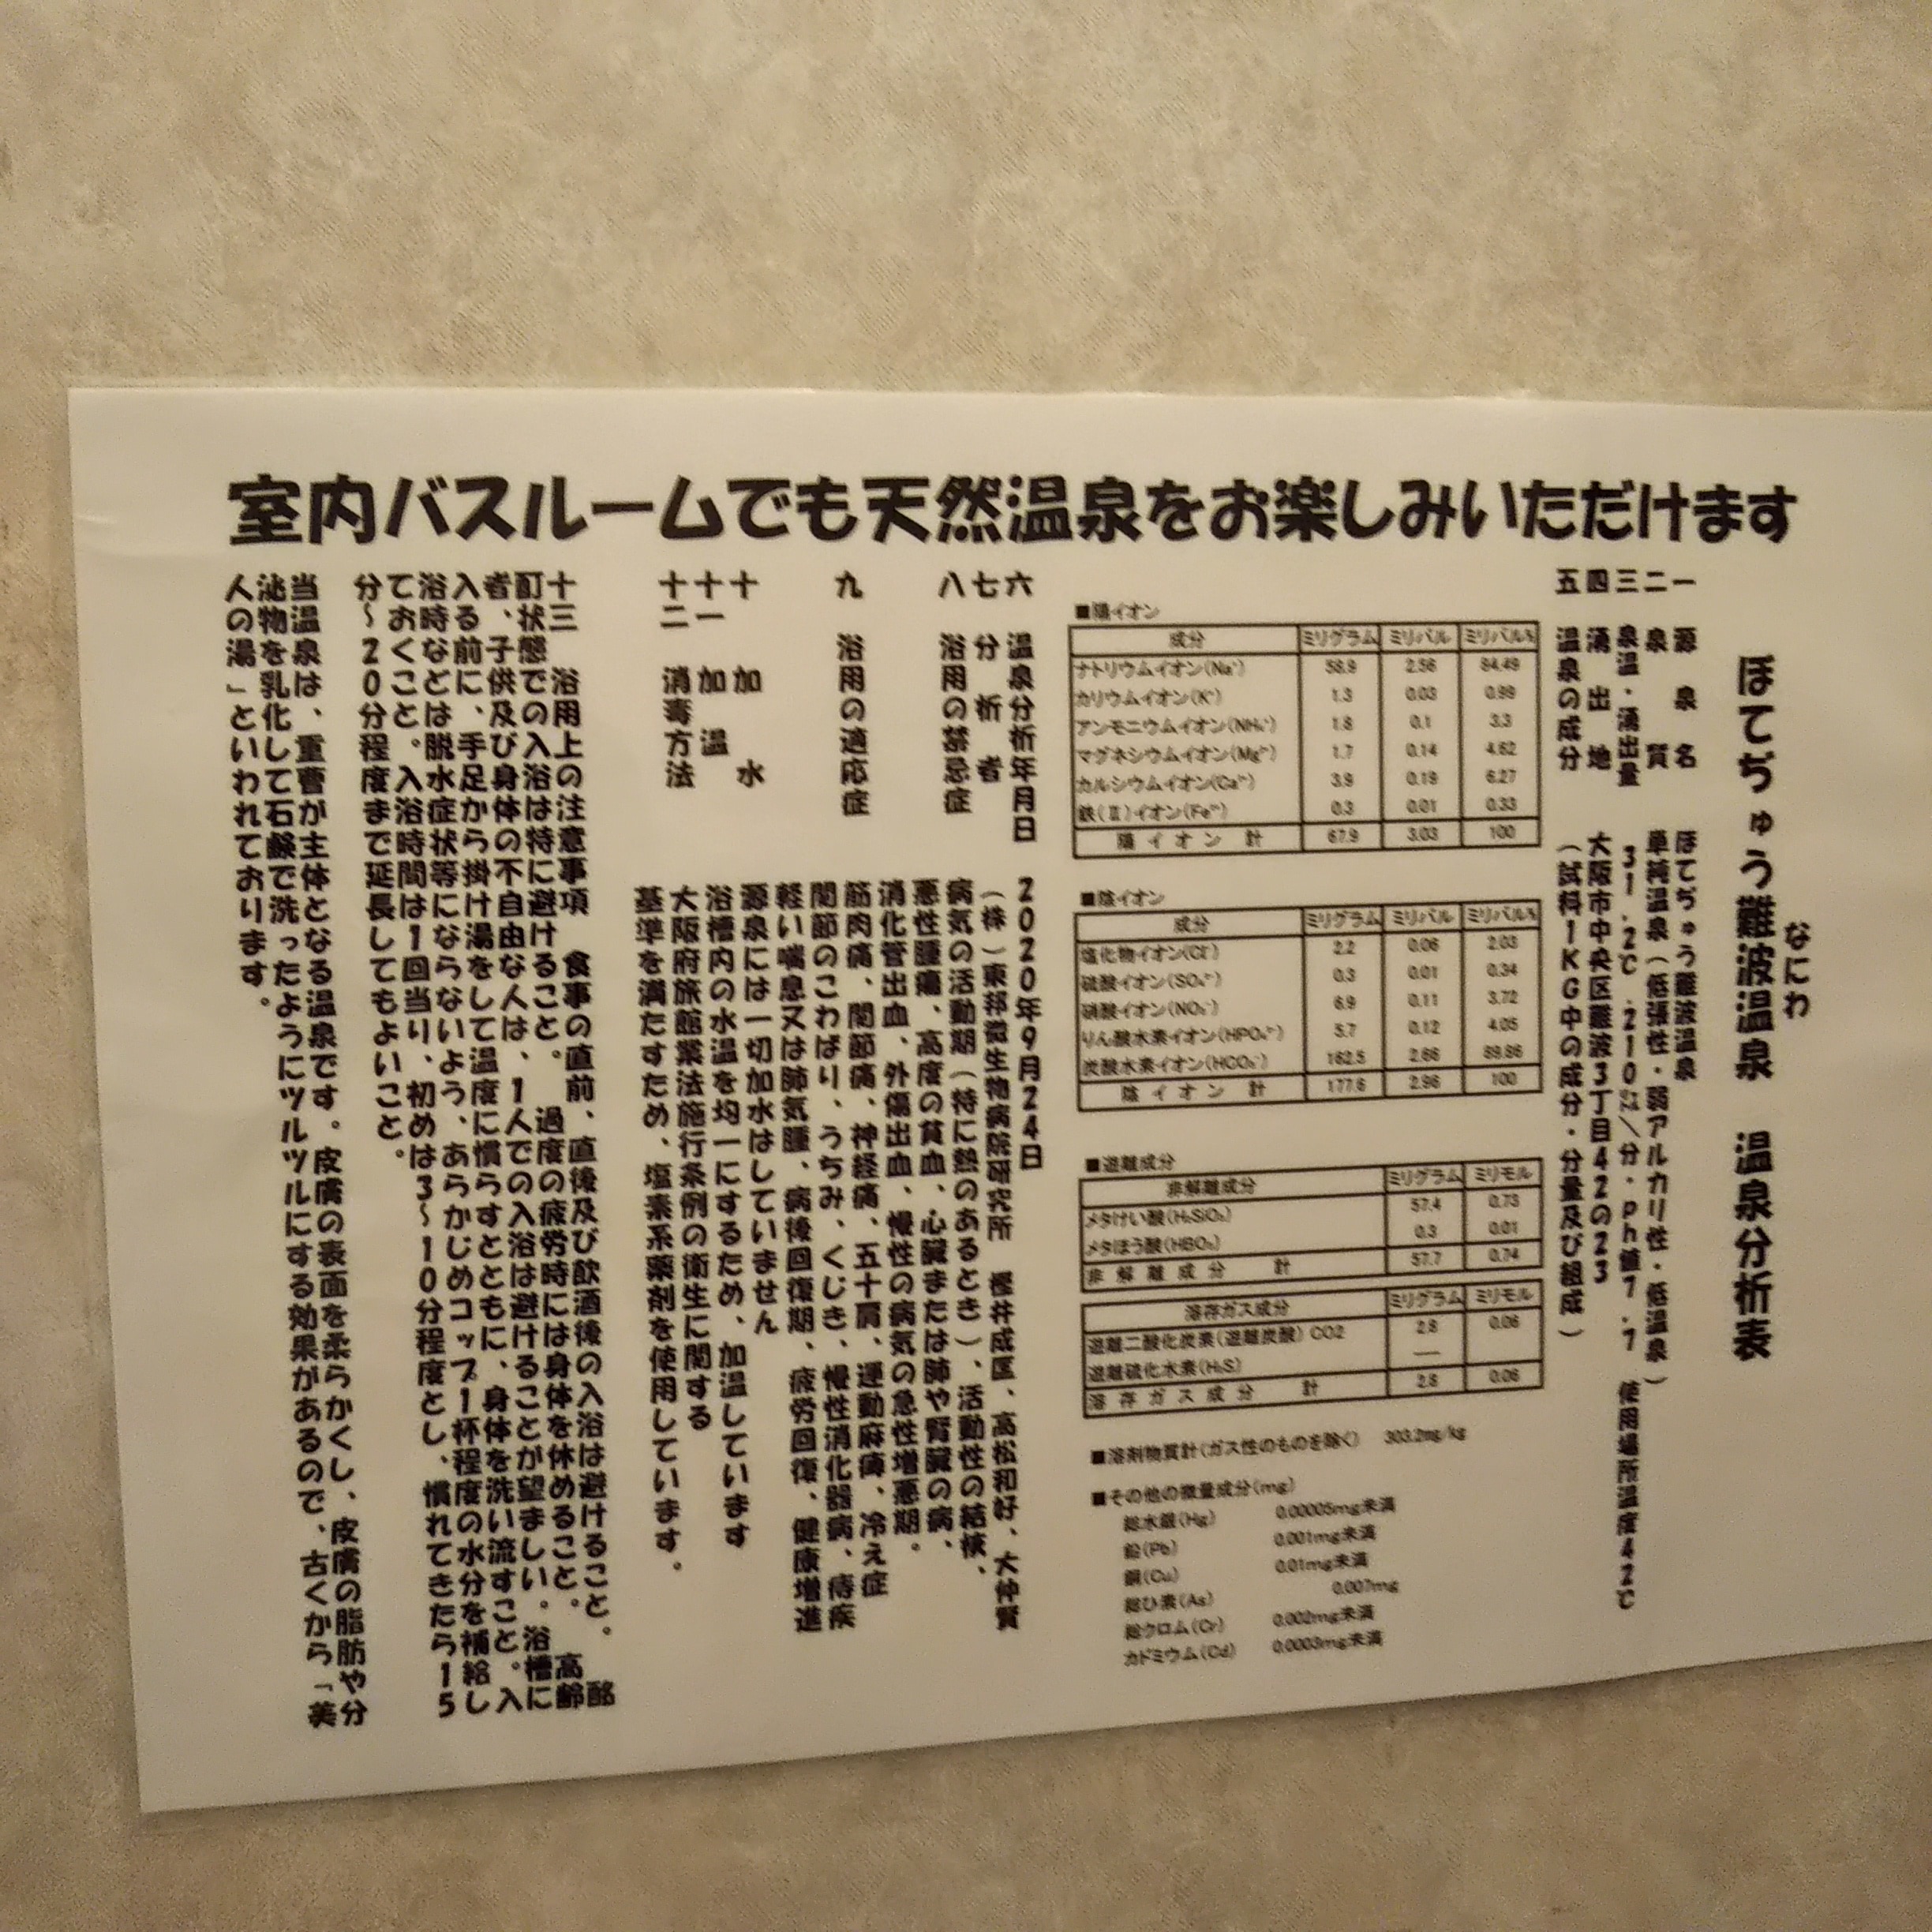 室内バスルームでも天然温泉をお楽しみいただけます
なにわ
ほてぢゅう難波温泉 温泉分析表
一 源泉名 ほてぢゅう難波温泉
二 泉質 単純温泉(低張性・弱アルカリ性・低温泉)
三 泉温・湧出量 31.2℃・210㍑/分・ph値7.7 使用場所温度42℃
四 湧出地 大阪市中央区難波3丁目42の23
五 温泉の成分 (試料1KG中の成分・分量及び組成)
■陽イオン
成分 ミリグラム ミリバル ミリバル%
ナトリウムイオン(Na⁺) 58.9 2.56 84.49
カリウムイオン(K⁺) 1.3 0.03 0.99
アンモニウムイオン(NH₄⁺) 1.8 0.1 3.3
マグネシウムイオン(Mg²⁺) 1.7 0.14 4.62
カルシウムイオン(Ca²⁺) 3.9 0.19 6.27
鉄(Ⅱ)イオン(Fe²⁺) 0.3 0.01 0.33
陽イオン 計 67.9 3.03 100
■陰イオン
成分 ミリグラム ミリバル ミリバル%
塩化物イオン(Cl⁻) 2.2 0.06 2.03
硫酸イオン(SO₄²⁻) 0.3 0.01 0.34
硝酸イオン(NO₃⁻) 6.9 0.11 3.72
りん酸水素イオン(HPO₄²⁻) 5.7 0.12 4.05
炭酸水素イオン(HCO₃⁻) 162.5 2.66 89.86
陰イオン 計 177.6 2.96 100
■遊離成分
非解離成分 ミリグラム ミリモル
メタけい酸(H₂SiO₃) 57.4 0.73
メタほう酸(HBO₂) 0.3 0.01
非解離成分 計 57.7 0.74
溶存ガス成分 ミリグラム ミリモル
遊離二酸化炭素(遊離炭酸) CO2 2.8 0.06
遊離硫化水素(H₂S) ―
溶存ガス成分 計 2.8 0.06
■溶剤物質計(ガス性のものを除く) 303.2mg/kg
■その他の微量成分(mg)
総水銀(Hg) 0.00005mg未満
鉛(Pb) 0.001mg未満
銅(Cu) 0.01mg未満
総ひ素(As) 0.007mg
総クロム(Cr) 0.002mg未満
カドミウム(Cd) 0.0003mg未満
六 温泉分析年月日 2020年9月24日
七 分析者 (株)東邦微生物病院研究所 樫井成匡、高松和好、大仲賢
八 浴用の禁忌症 病気の活動期(特に熱のあるとき)、活動性の結核、
悪性腫瘍、高度の貧血、心臓または肺や腎臓の病、
消化管出血、外傷出血、慢性の病気の急性増悪期。
九 浴用の適応症 筋肉痛、関節痛、神経痛、五十肩、運動麻痺、冷え症
関節のこわばり、うちみ、くじき、慢性消化器病、痔疾
軽い喘息又は肺気腫、病後回復期、疲労回復、健康増進
十 加水 源泉には一切加水はしていません
十一 加温 浴槽内の水温を均一にするため、加温しています
十二 消毒方法 大阪府旅館業法施行条例の衛生に関する
基準を満たすため、塩素系薬剤を使用しています。
十三 浴用上の注意事項 食事の直前、直後及び飲酒後の入浴は避けること。 酩
酊状態での入浴は特に避けること。 過度の疲労時には身体を休めること。 高齢
者、子供及び身体の不自由な人は、1人での入浴は避けることが望ましい。浴槽に
入る前に、手足から掛け湯をして温度に慣らすとともに、身体を洗い流すこと。入
浴時などは脱水症状等にならないよう、あらかじめコップ1杯程度の水分を補給し
ておくこと。入浴時間は1回当り、初めは3~10分程度とし、慣れてきたら15
分~20分程度まで延長してもよいこと。
当温泉は、重曹が主体となる温泉です。皮膚の表面を柔らかくし、皮膚の脂肪や分
泌物を乳化して石鹸で洗ったようにツルツルにする効果があるので、古くから「美
人の湯」といわれております。